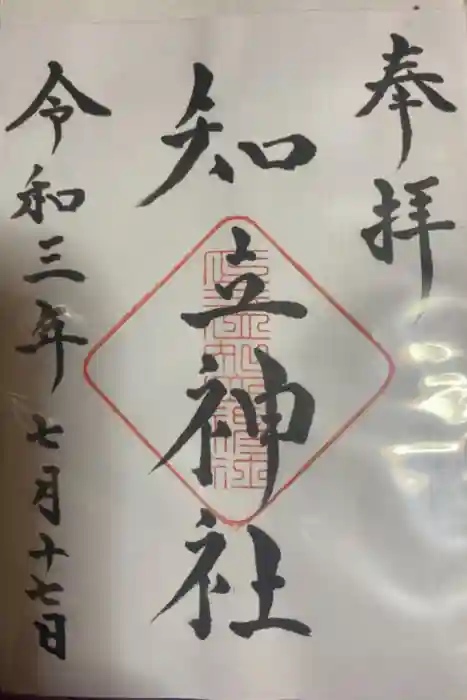 奉拝
知立神社
令和三年七月十七日